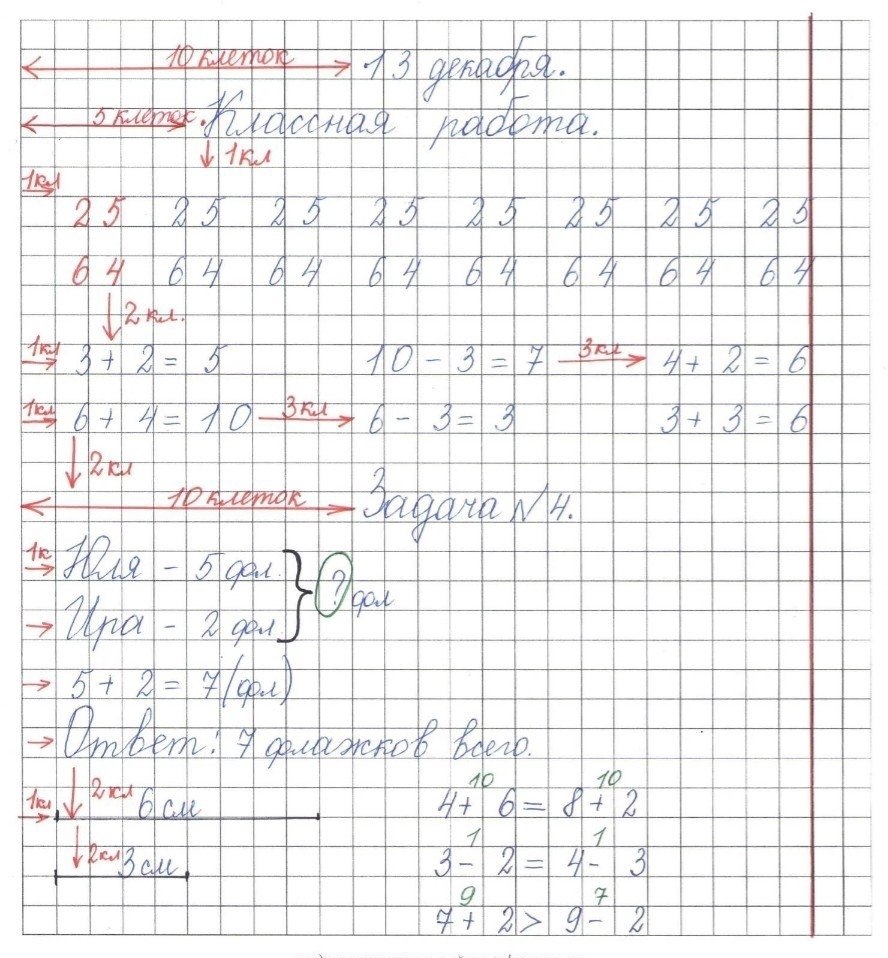 10 клеток 13 декабря.
5 клеток. Классная работа.
1кл
1кл
25 25 25 25 25 25 25 25
64 64 64 64 64 64 64 64
2 кл.
1кл 3 + 2 = 5 10 - 3 = 7 3кл 4 + 2 = 6
1кл 6 + 4 = 10 3кл 6 - 3 = 3 3 + 3 = 6
2 кл
10 клеток Задача №4.
1к Юля - 5 фл. } ? фл
Ира - 2 фл
5 + 2 = 7 (фл)
Ответ: 7 флажков всего.
10 10
1кл 2кл 6 см 4 + 6 = 8 + 2
1 1
2кл 3 см 3 - 2 = 4 - 3
9 7
7 + 2 > 9 - 2